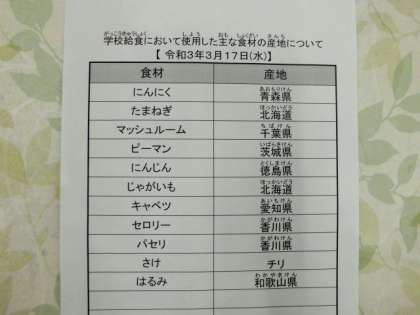 がっこうきゅうしょく しよう おも しょくざい さんち
学校給食において使用した主な食材の産地について
【 令和3年3月17日(水)】
食材 産地
にんにく 青森県
たまねぎ 北海道
マッシュルーム 千葉県
ピーマン 茨城県
にんじん 徳島県
じゃがいも 北海道
キャベツ 愛知県
セロリー 香川県
パセリ 香川県
さけ チリ
はるみ 和歌山県